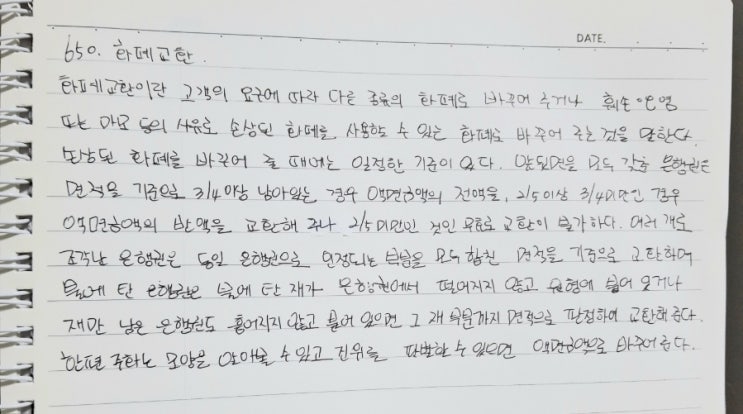 DATE.
650. 화폐교환.
화폐교환이란 고객의 요구에 따라 다른 종류의 화폐로 바꾸어 주거나 훼손·오염
또는 마모 등의 사유로 손상된 화폐를 사용할 수 있는 화폐로 바꾸어 주는 것을 말한다.
손상된 화폐를 바꾸어 줄 때에는 일정한 기준이 있다. 앞뒷면을 모두 갖춘 은행권은
면적을 기준으로 3/4이상 남아있는 경우 액면금액의 전액을, 2/5이상 3/4미만인 경우
액면금액의 반액을 교환해 주나 2/5미만인 것인 무효로 교환이 불가하다. 여러 개로
조각난 은행권은 동일 은행권으로 인정되는 부분을 모두 합친 면적을 기준으로 교환하며
불에 탄 은행권은 불에 탄 재가 은행권에서 떨어지지 않고 원형에 붙어 있거나
재만 남은 은행권도 흩어지지 않고 붙어 있으면 그 재 부분까지 면적으로 판정하여 교환해 준다.
한편 주화는 모양을 알아볼 수 있고 진위를 판별할 수 있으면 액면금액으로 바꾸어 준다.